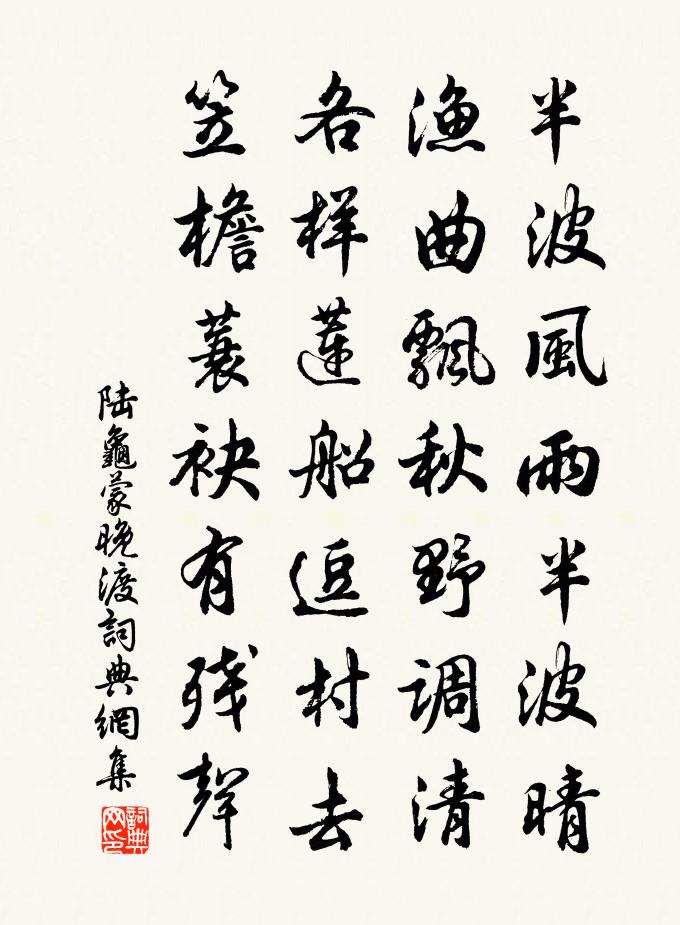 半波風雨半波晴
漁曲飄秋野調清
各様蓮船逗村去
笠檐蓑袂有殘聲
陆龜蒙晚渡詞典網集
詞典网印